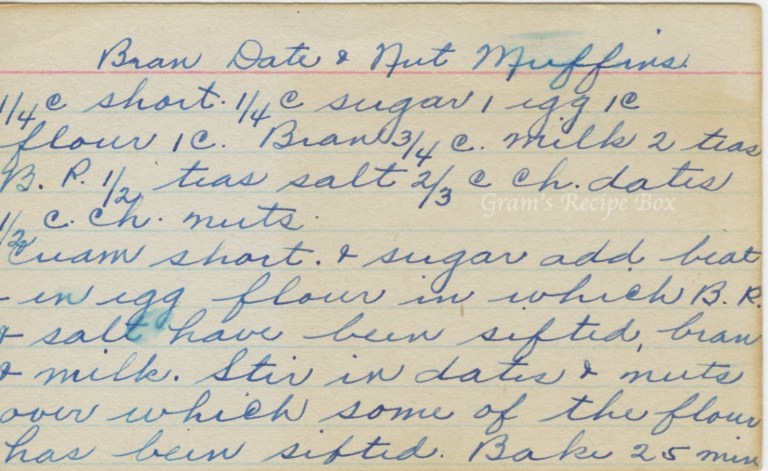 Bran Date & Nut Muffins.
1/4 c short. 1/4 c sugar 1 egg 1c
flour 1c. Bran 3/4 c. milk 2 teas
B. P. 1/2 teas salt 2/3 c ch. dates
Gram's Recipe Box
1/2 c. ch. nuts.
Cream short. & sugar add beat
- en egg flour in which B. P.
& salt have been sifted, bran
& milk. Stir in dates & nuts
over which some of the flour
has been sifted. Bake 25 min